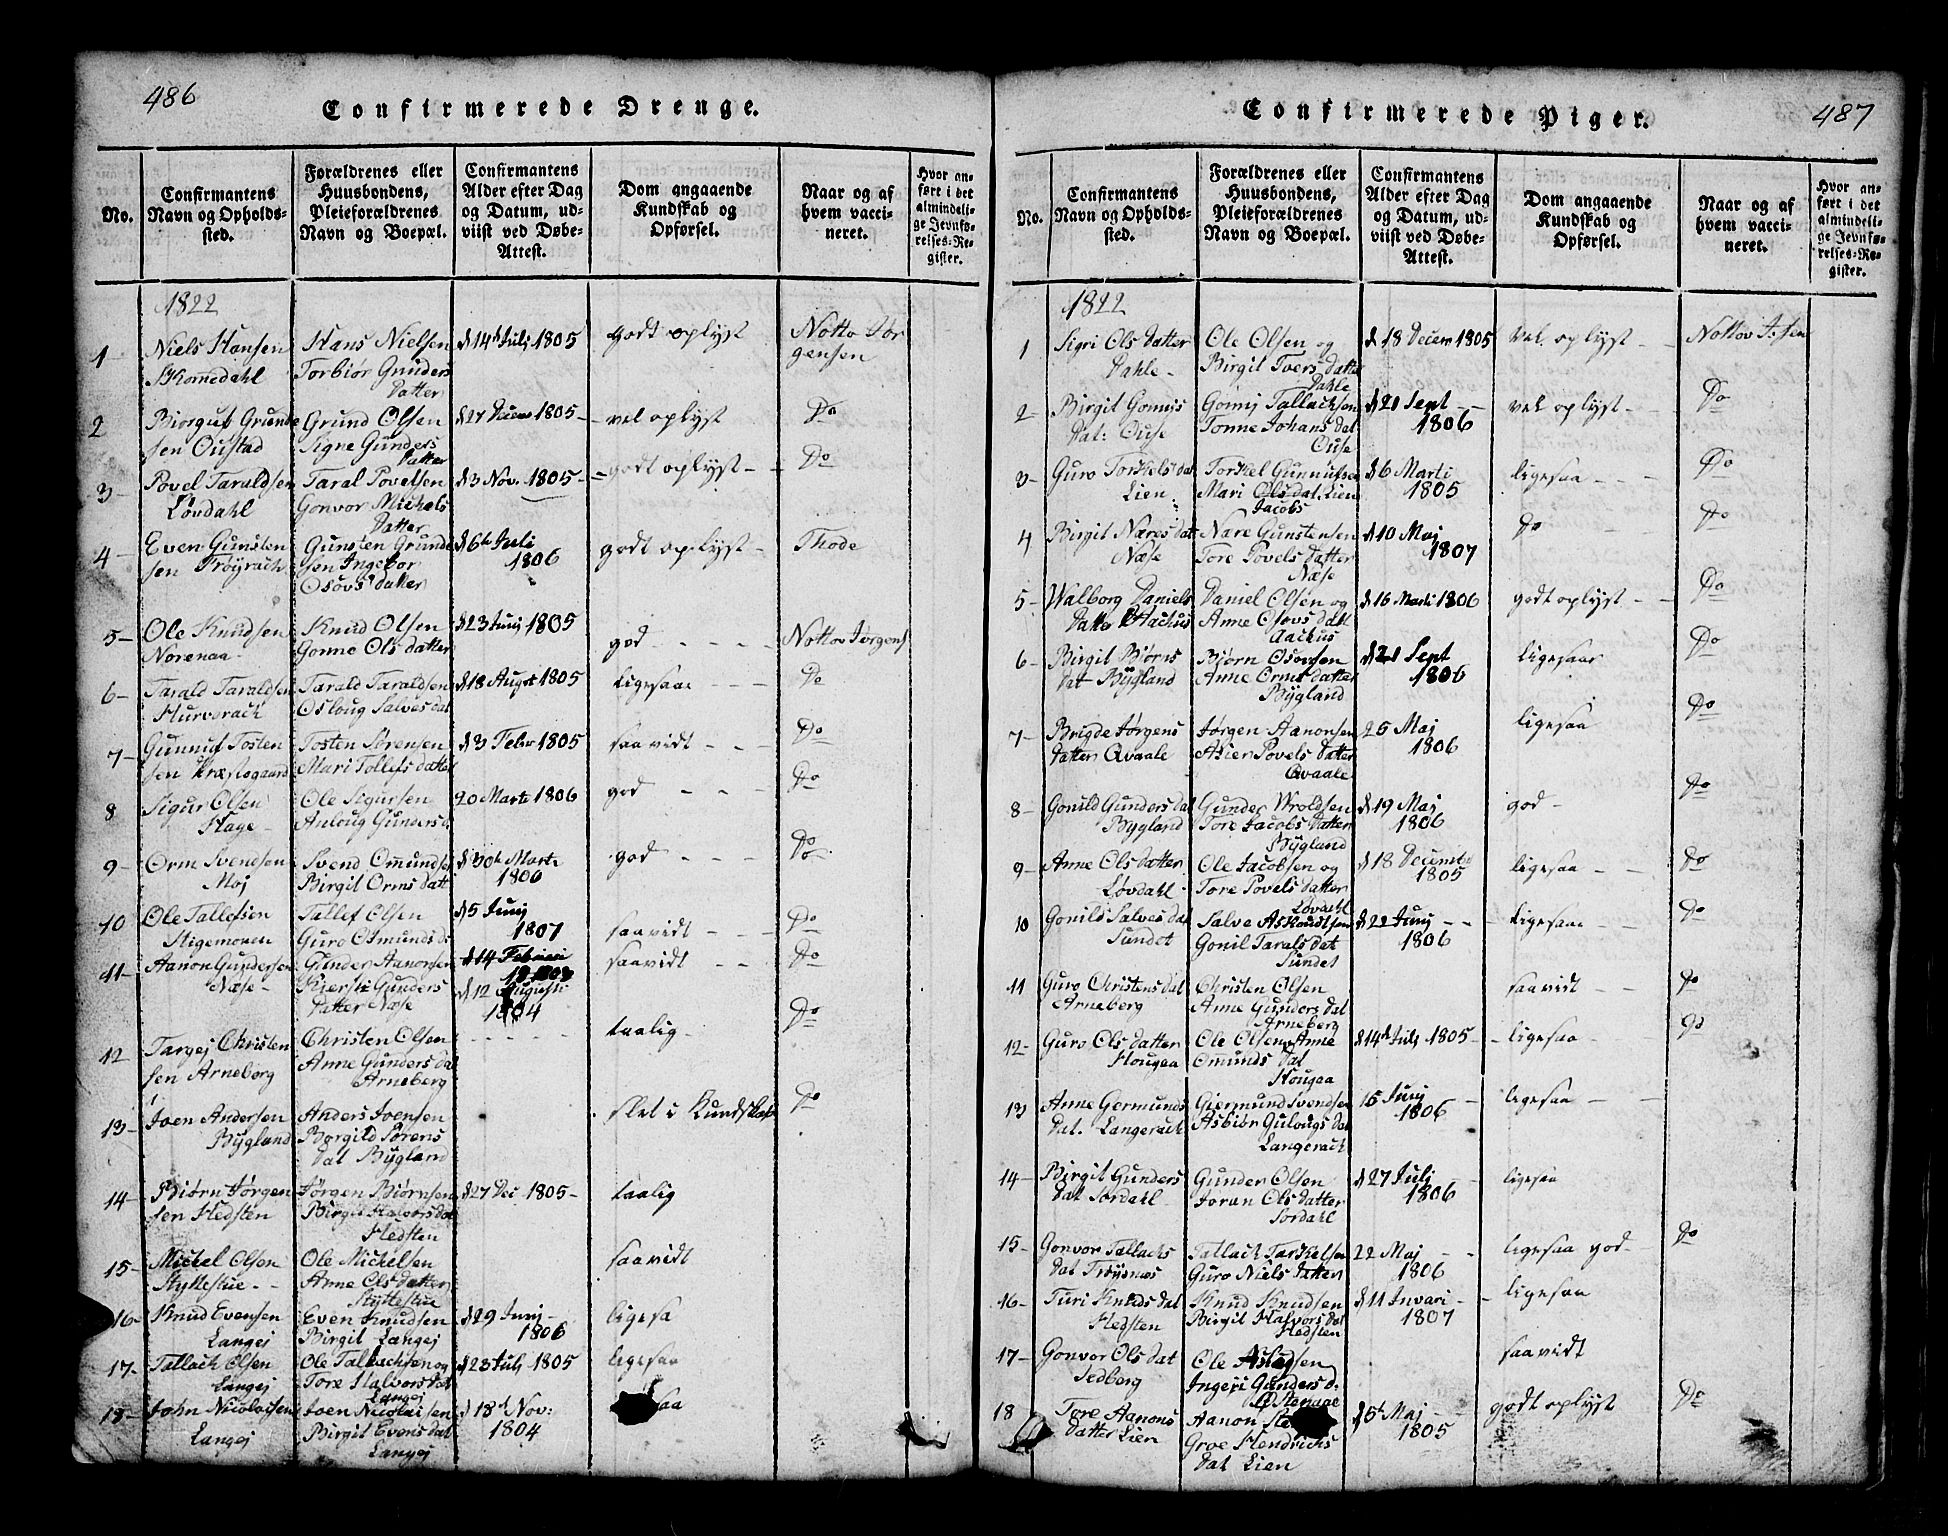 486
Confirmerede Drenge.
No.
Confirmantens Navn og Opholds-sted.
Forældrenes eller Huusbondens, Pleieforældrenes Navn og Boepæl.
Confirmantens Alder efter Dag og Datum, ud-viist ved Døbe-Attest.
Dom angaaende Kundskab og Opførsel.
Naar og af hvem vacci-neret.
Hvor an-ført i det almindeli-ge Jevnfø-relses-Re-gister.
1822
1 Niels Hansen Hans Nielsen d 14de Julj 1805 godt oplyst Notto Jør
Skomedahl Torbiør Gunders gensen
Datter
2 Biorguf Grunde Grund Olsen d 27 Decem 1805 - vel oplyst Do
sen Oustad Signe Gunders
Datter
3 - Povel Taraldsen Taral Povelsen d 3 Nov. 1805 - godt oplyst - Do
Løvdahl Gonvor Michels
Datter
4 - Even Gunsten Gunsten Grunde d 6te Juli godt oplyst - Thode
sen Frøyrach sen Ingebor 1806
Osovs datter
5 - Ole Knudsen Knud Olsen d 23 Junj 1805 god - - - Nottov Jørgens
Norenaa Gonne Ols datter
6 - Tarald Taraldsen Tarald Taraldsen d 18 Augst 1805 ligesaa - - Do
Hurverach Osloug Salves dat
7 - Gunnuf Tosten Tosten Sørensen d 3 Febr 1805 saavidt - - Do
sen Præstegaard Mari Tollefs datter
8 Sigur Olsen Ole Sigursen 20 Marts 1806 god - - - Do
Hage - Anloug Gunders d
9 - Orm Svendsen Svend Omundsen d 30te Marts god - - - Do
Moj Birgit Orms dat 1806
10 Ole Tallefsen Tallef Olsen d 5 Junj saavidt - - Do
Stigemoren Guro Osmunds d 1807
11 - Aanon Gundersen Gunder Aanonsen d 14 Februari saavidt - - Do
Næse - Kiersti Gunders
Datter Næse d 12 Augusti
1804
12 - Targej Christen Christen Olsen - - - - taalig - Do
sen Arneberg Anne Gunders dat
Arneberg
13 - Joen Andersen Anders Joensen slet i Kundskab Do
Bygland Borgild Sørens
Dat Bygland
14 - Biørn Jørgen Jørgen Biørnsen d 27 Dec 1805 - taalig
sen Hedsten Birgit Halvors dat
Hedsten
15 - Michel Olsen Ole Michelsen saavidt
Styttestue - - Anne Ols datter
Styttestue
16 - Knud Evensen Even Knudsen d 29 Junj - ligesa
Langej Birgit Langej 1806
17 - Tallach Olsen Ole Tallachsen og d 23 Julj 1805 ligesaa
Langej Tore Halvors dat
Langej
18 - John Nicolaisen Joen Nicolaisen d 18de Nov: saa
Langej Birgit Evens dat 1804
Langej
487
Confirmerede Piger.
No.
Confirmantens Navn og Opholds-sted.
Forældrenes eller Huusbondens, Pleieforældrenes Navn og Boepæl.
Confirmantens Alder efter Dag og Datum, ud-viist ved Døbe-Attest.
Dom angaaende Kundskab og Opførsel.
Naar og af hvem vacci-neret.
Hvor an-ført i det almindeli-ge Jevnfø-relses-Re-gister.
1822
1 Sigri Ols Datter Ole Olsen og d 18 Decem 1805 vel oplyst - Nottov
Dahle - Birgit Tvers datter
Dahle
2 - Birgit Gomijs Gomij Tallachsen d 21 Sept - - vel oplyst - Do
Dat: Ouse Tonne Johans dat 1806
Ouse
3 - Guro Torkels dat Torkel Gunnufsen d 6 Marti ligesaa - - - Do
Lien Mari Ols dat. Lien 1805
Jacobs
4 Birgit Næres dat Nare Gunstensen d 10 Maj Do - Do
Næse Tore Povels datter 1807
Næse
5 - Walborg Daniels Daniel Olsen og d 16 Marti 1806 godt oplyst - - Do
Datter Aachus Anne Osovs datt
Aachus
6 - Birgit Biørns Biørn Osovsen d 21 Sept ligesaa Do
dat Bygland Anne Orms datter 1806
Bygland
7 - Brigde Jørgens Jørgen Aanonsen 25 Maj ligesaa Do
Datter Qvaale Asier Povels Datter 1806
Qvaale
8 - Gonild Gunders dat Gunder Wroldsen d 19 Maj god - Do
Bygland Tore Jacobs datter 1806
Bygland
9 - Anne Ols datter Ole Jacobsen og d 18 Decembr ligesaa - - Do
Løvdahl - Tore Povels datter 1805
Løvdahl
10 Gonild Salves dat Salve Asknudtsen d 22 Junj - - ligesaa - Do
Sundet Gonil Tarals dat 1806
Sundet
11 Guro Christens dat Christen Olsen saavidt - - Do
Arneberg Anne Gunders dat
Arneberg
12 - Guro Ols datter Ole Olsen Anne d 14de Julj 1805 - - ligesaa - Do
Hougaa Omunds Dat
Hougaa
13 Anne Germunds Giermund Svendsen 15 Junj ligesaa - -
Dat. Langerach Asbiør Gulougs Dat 1806
Langerach
14 - Birgit Gunders Gunder Olsen d 27 Juli - ligesaa
Dat Sordahl Joran Ols datter 1806
Sordahl
15 - Gonvor Tallachs Tallach Tarkelsen 22 Maj - - ligesaa god - Do
Dat Frøysnæs Guro Niels datter 1806
16 - Turi Knuds dat Knud Knudsen d 11 Januari - - ligesaa
Hedsten Birgit Halvors dat 1807
Hedsten
17 - Gonvor Ols dat Ole Aslagsen saavidt
Sedberg Ingeri Gunders d:
18 Tore Aanons Aanon d 5te Maj - - godt oplyst Do
Datter Lien Groe Hendrichs 1805
Dat Lien